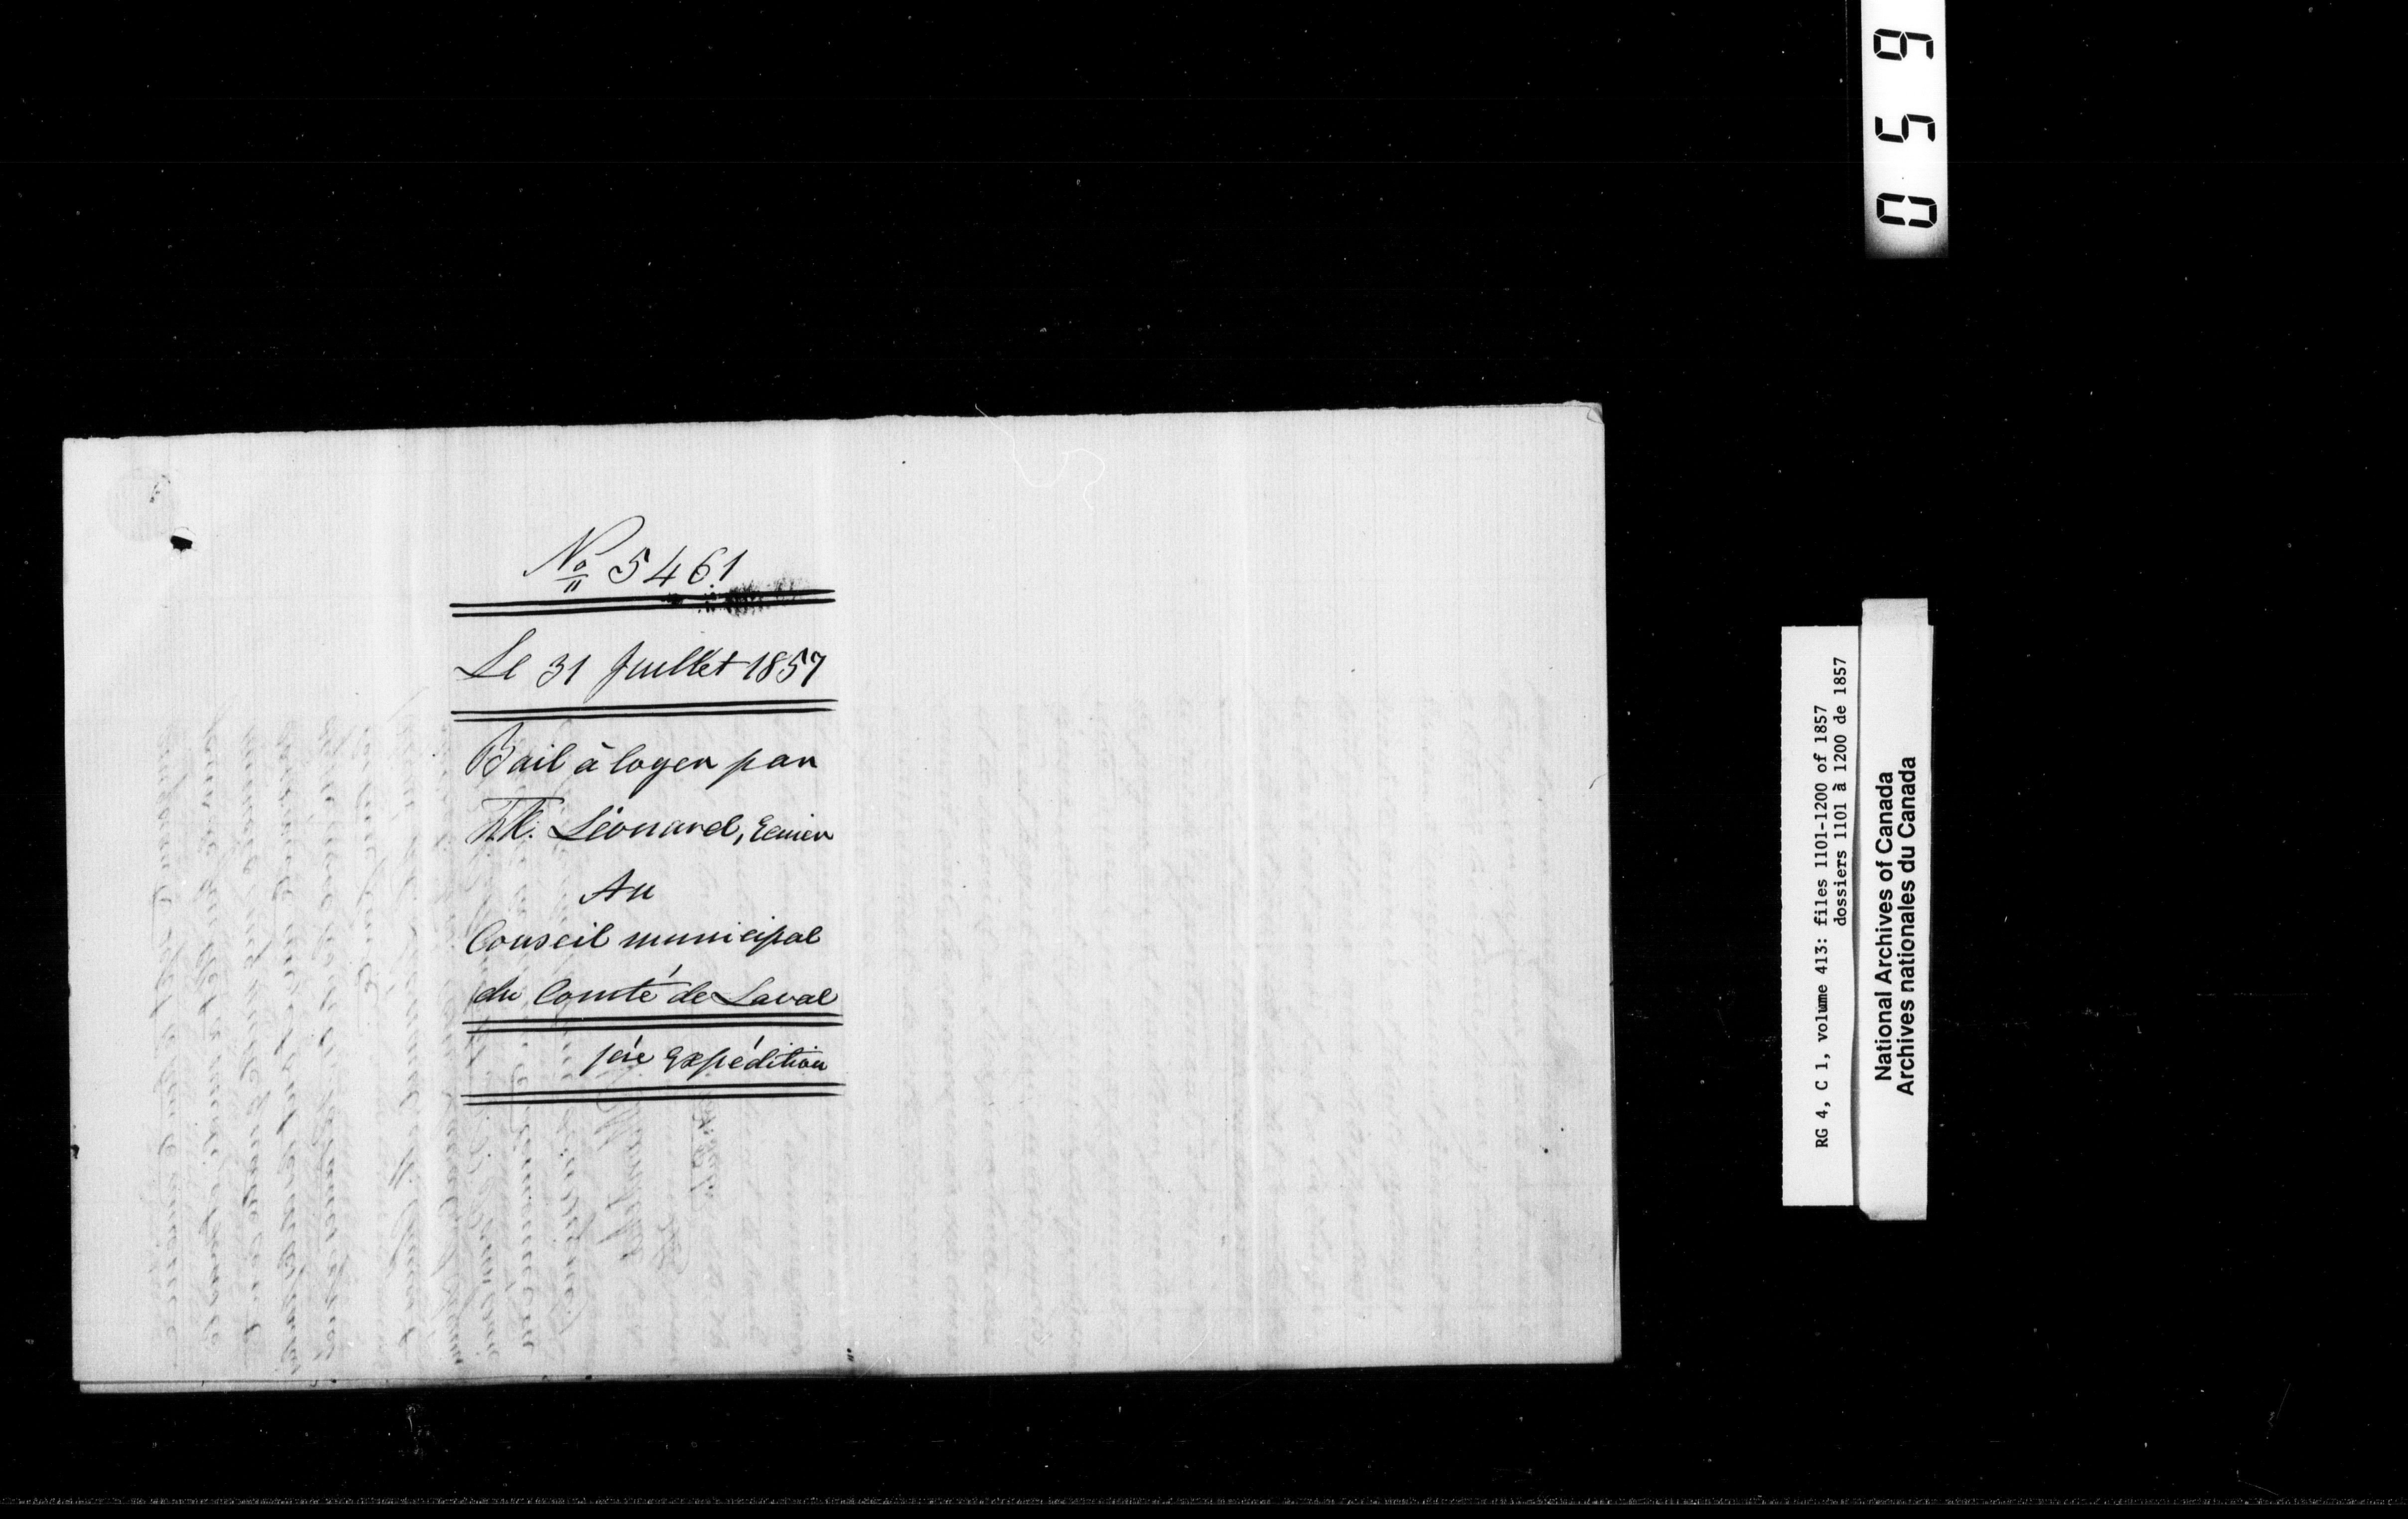 No 5461
Le 31 Juillet 1857
Bail à loyer par
Léonard, Ecuier
Au
Conseil municipal
du Comté de Laval
1ère Expédition
059
RG 4, C 1, volume 413: files 1101-1200 of 1857
dossiers 1101 à 1200 de 1857
National Archives of Canada
Archives nationales du Canada